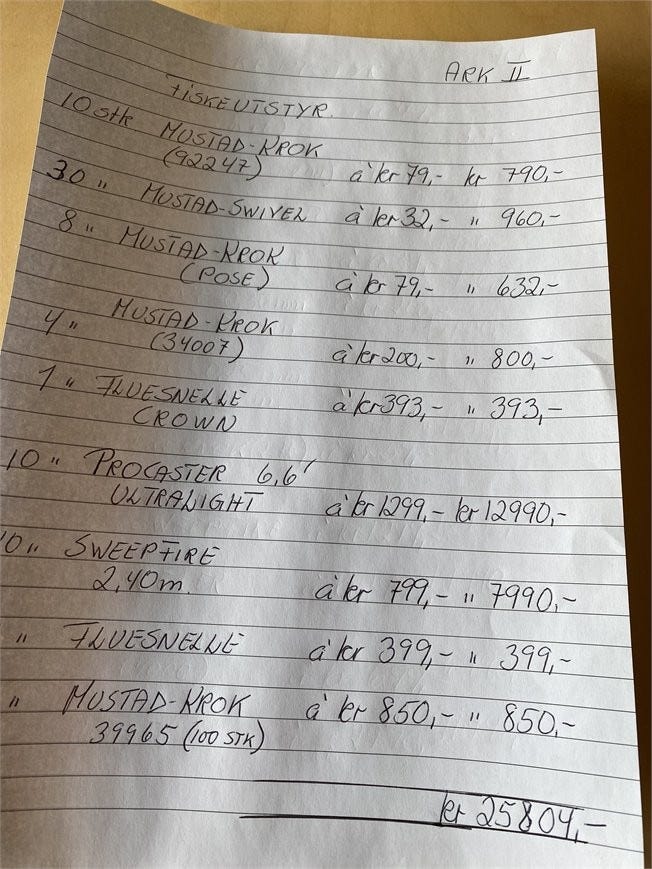 ARK II
FISKEUTSTYR.
10 stk MUSTAD-KROK
(92247) à kr 79,- kr 790,-
30 " MUSTAD-SWIVEL à kr 32,- " 960,-
8 " MUSTAD-KROK
(POSE) à kr 79,- " 632,-
4 " MUSTAD-KROK
(34007) à kr 200,- " 800,-
1 " FLUESNELLE à kr 393,- " 393,-
CROWN
10 " PROCASTER 6,6'
ULTRALIGHT à kr 1299,- kr 12990,-
10 " SWEEPFIRE
2,40 m. à kr 799,- " 7990,-
" FLUESNELLE à kr 399,- " 399,-
" MUSTAD-KROK à kr 850,- " 850,-
39965 (100 STK)
kr 25804,-